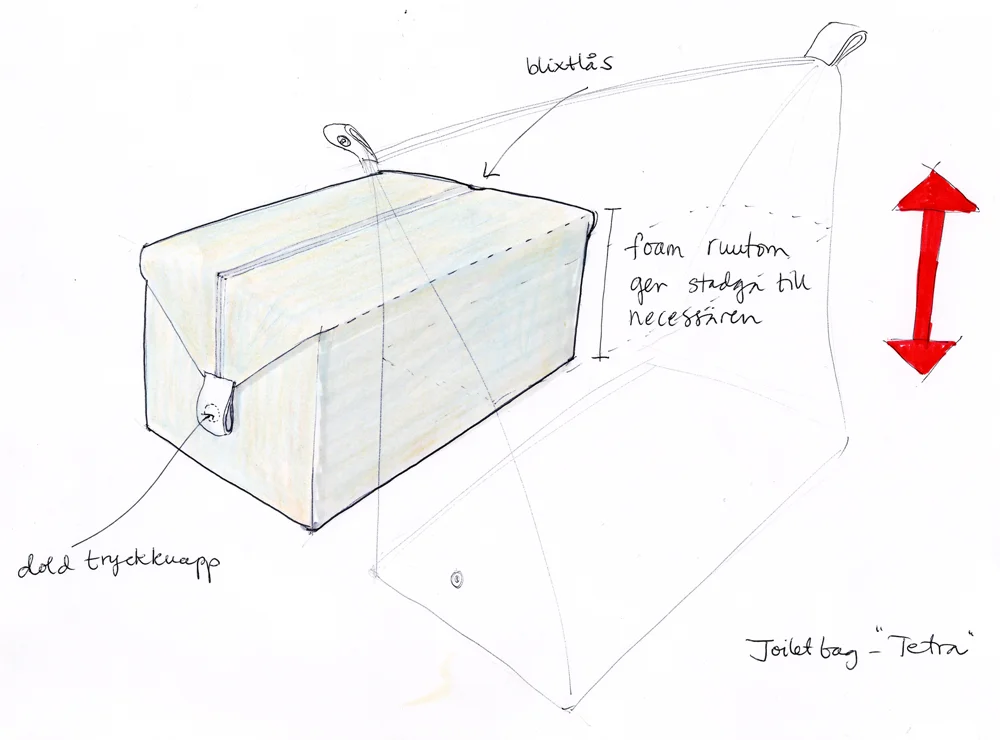 blixtlås
foam runtom
ger stadga till
necessären
dold tryckknapp
Toilet bag - "Tetra"